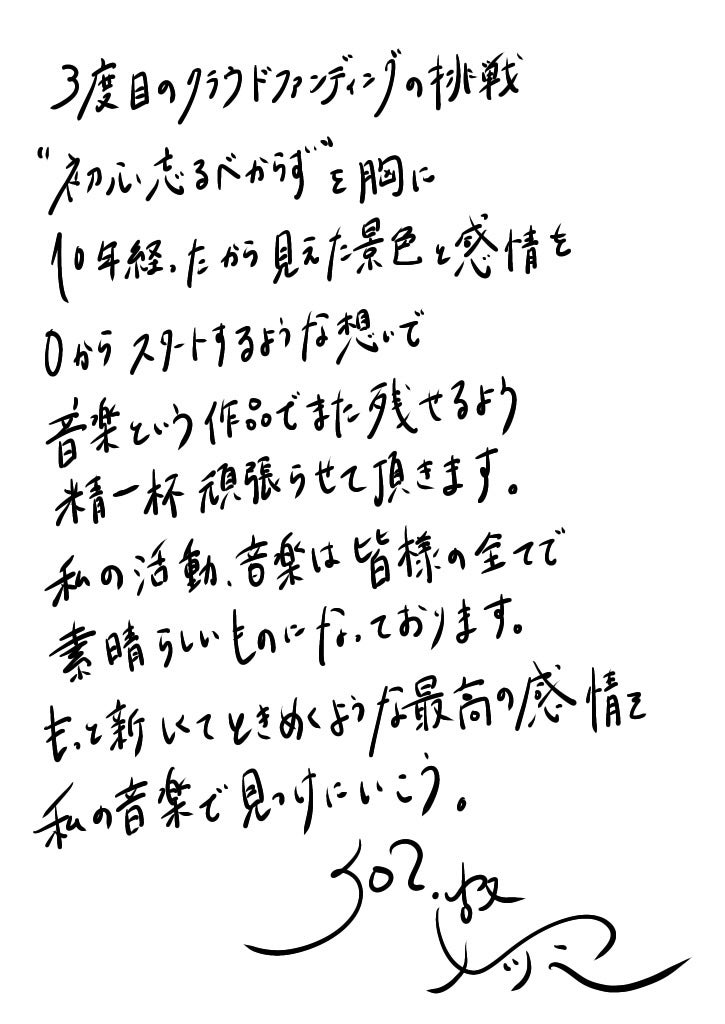 3度目のクラウドファンディングの挑戦
“初心忘るべからず”を胸に
10年経ったから見えた景色と感情を
0からスタートするような想いで
音楽という作品でまた残せるよう
精一杯頑張らせて頂きます。
私の活動、音楽は皆様の全てで
素晴らしいものになっております。
もっと新しくてときめくような最高の感情を
私の音楽で見つけにいこう。